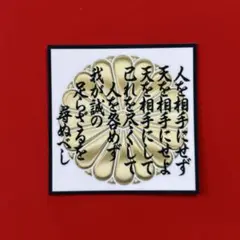 人を相手にせず
天を相手にせよ
天を相手にして
己れを尽くして
人を咎めず
我が誠の
足らざるを
尋ぬべし